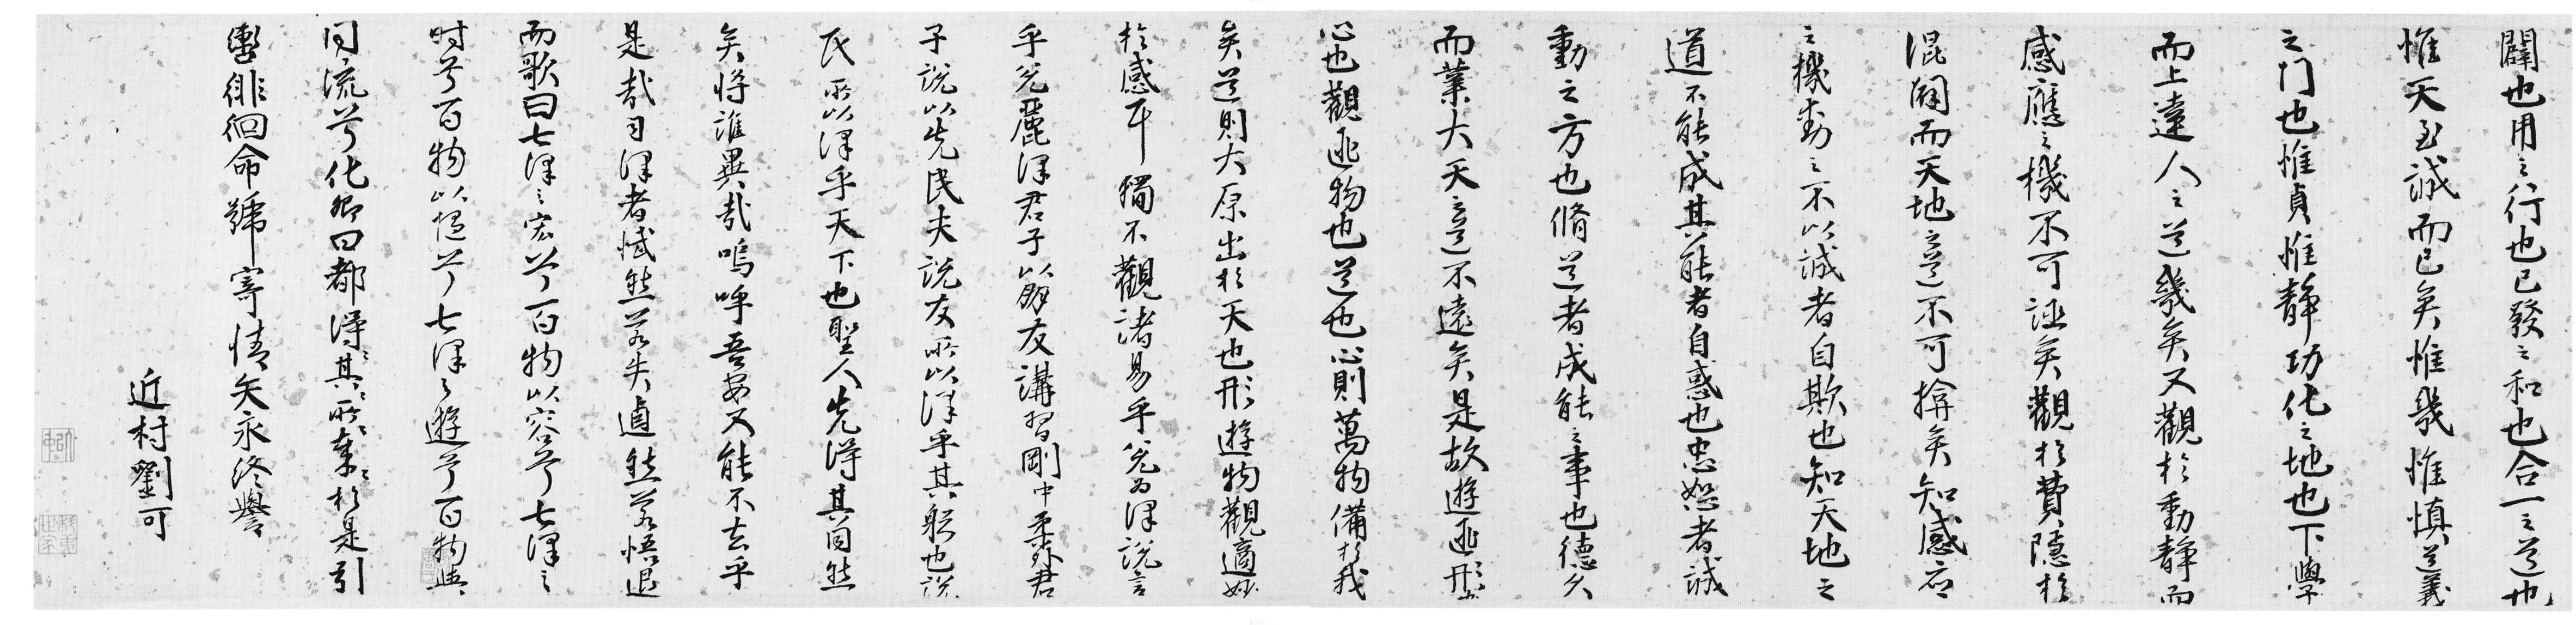 闢也用之行也已發之和也合一之道也
惟天至誠而已矣惟幾惟慎道義
之门也惟貞惟靜功化之地也下學
而上達人之道幾矣又觀於動靜而
感應之機不可誣矣觀於費隱於
混闢而天地之意不可揜矣知感应
之機動之不以誠者自欺也知天地之
道不能成其能者自惑也忠恕者誠
動之方也脩道者成能之事也德久
而業大天之意不遠矣是故遊迹形
心也觀迹物也道也心則萬物備於我
矣道則大原出於天也形遊物觀適妙
於感耳獨不觀諸易乎兌為澤說言
乎兌麗澤君子以朋友講習剛中柔外君
子說以先民夫說友所以澤乎其躬也說
民所以澤乎天下也聖人先得其同然
矣將誰異哉嗚呼吾安又能不去乎
是哉司澤者憮然若失逌然若悟退
而歌曰七澤之宏兮百物以容兮七澤之
时兮百物以熙兮七澤之遊兮百物與
同流兮化卿曰都得其所得其所率於是引
轡徘徊命號寄情矢永终譽
近村劉可